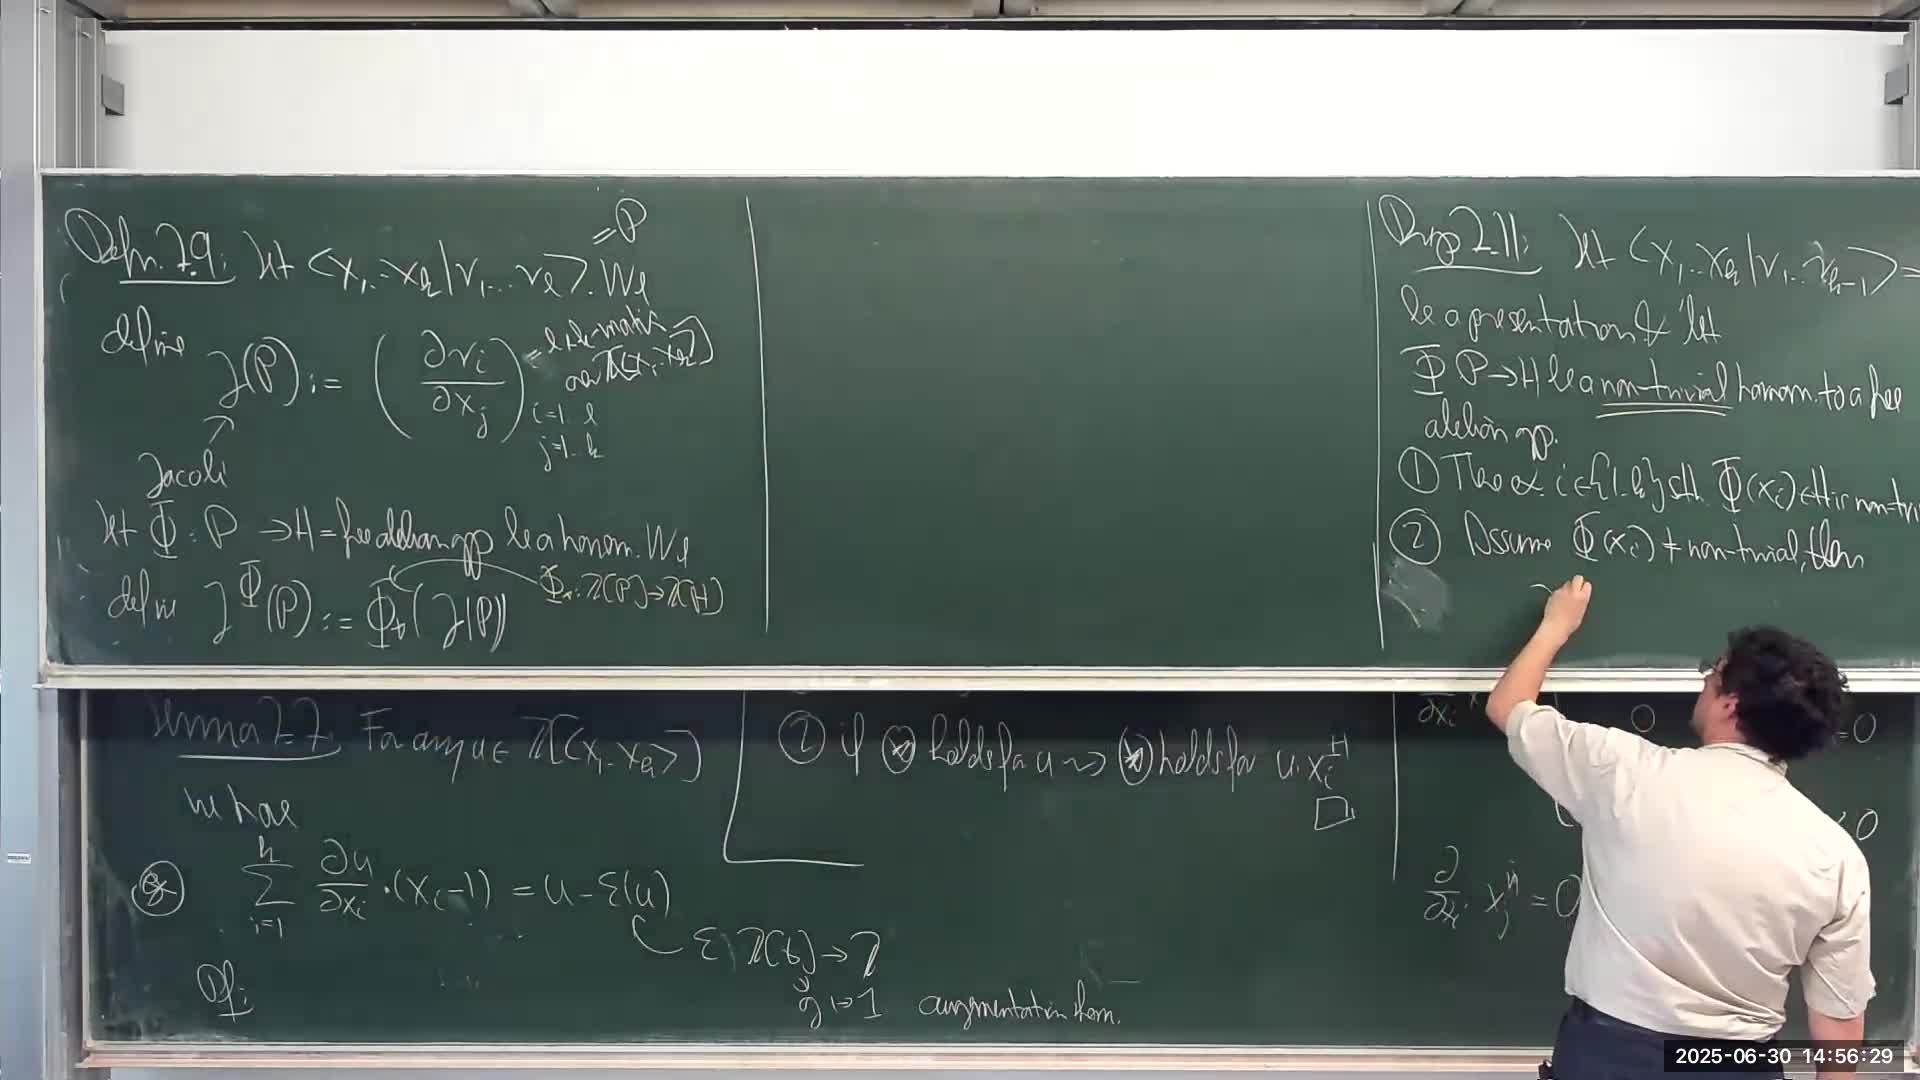 Defn. 7.9: Let <x₁...x_k|r₁...r_l>. We
= P
define J(P) := (∂r_i/∂x_j) i=1..l j=1..k
= l×k-matrix
over Z[<x₁..x_k>]
Jacobi
Let Φ: P → H = free abelian gp be a homom. We
define J^Φ(P) := Φ_*(J(P))
Φ_*: Z[P] → Z[H]
Prop 7.11: Let <x₁..x_k|r₁...r_{k-1}> =
be a presentation & let
Φ P → H be a non-trivial homom. to a free
abelian gp.
① There ex. i∈{1..k} s.th. Φ(x_i)∈H is non-tri
② Assume Φ(x_i) ≠ non-trivial, then
Lemma 7.7. For any u ∈ Z[<x₁..x_k>]
we have
⊛ Σ_{i=1}^k ∂u/∂x_i · (x_i-1) = u - ε(u)
ε: Z[G] → Z
g ↦ 1 augmentation hom.
Pf:
② if ⊛ holds for u ⇝ ⊛ holds for u·x_i^{±1}
□
∂/∂x_i
0
=0
<0
∂/∂x_i x_j^n = 0
2025-06-30 14:56:29